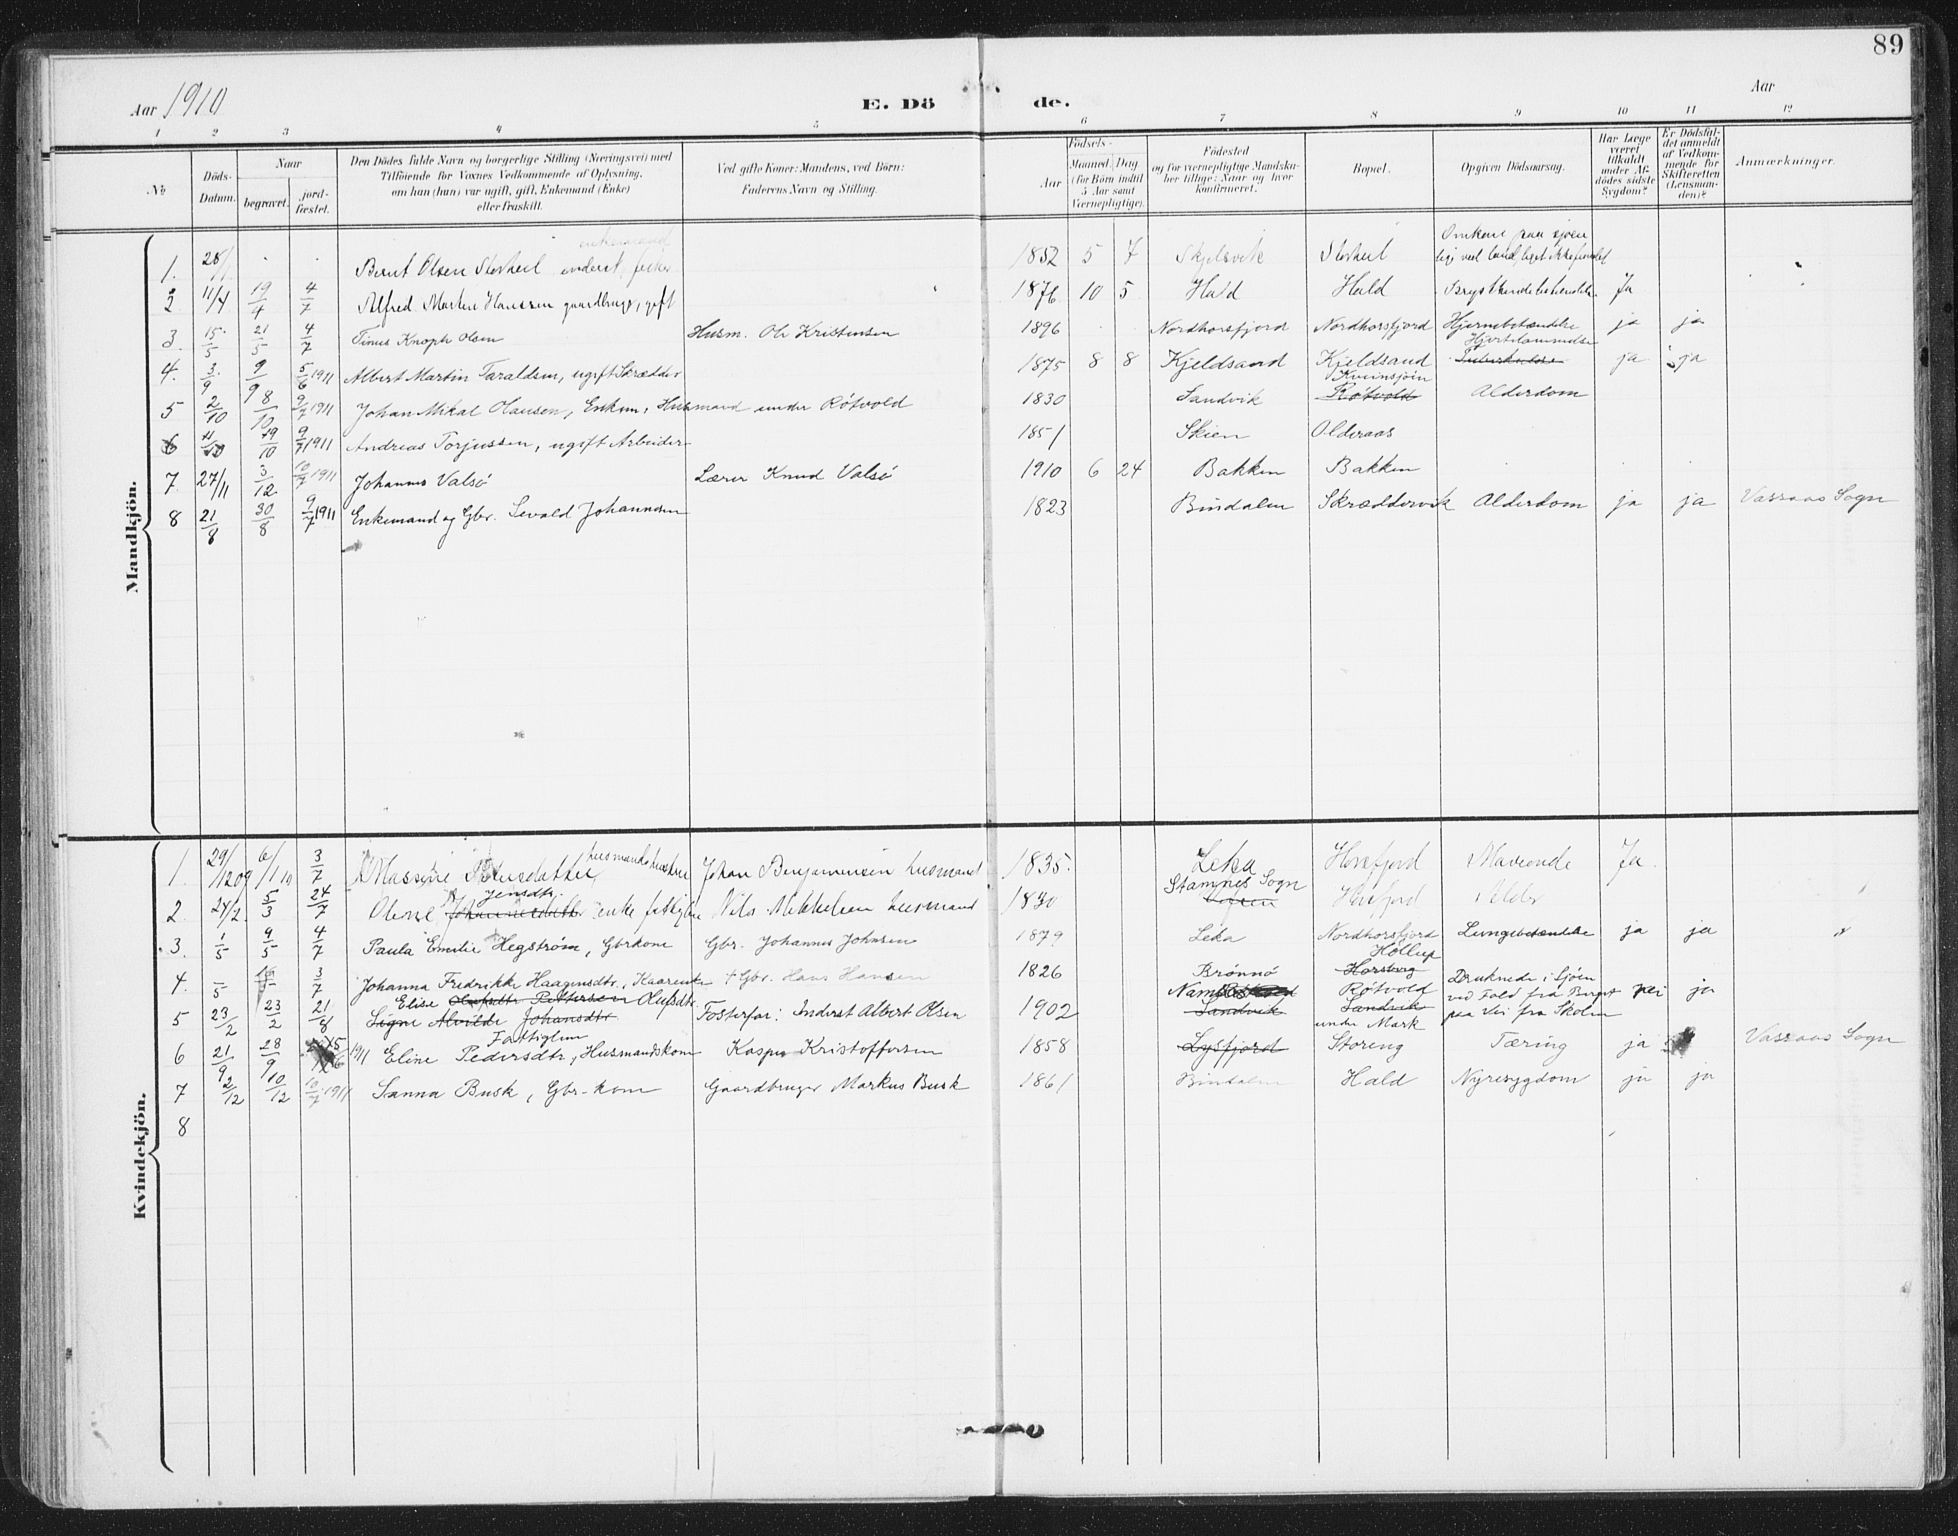 89
Aar 1910
E. Dö de.
Aar
1 2 3 4 5 6 7 8 9 10 11 12
No
Döds-Datum.
Naar
begravet.
jord-fæstet.
Den Dödes fulde Navn og borgerlige Stilling (Næringsvei) med Tilföiende for Voxnes Vedkommende af Oplysning, om han (hun) var ugift, gift, Enkemand (Enke) eller fraskilt.
Ved gifte Koner: Mandens, ved Börn: Faderens Navn og Stilling.
Födsels-
Aar
Maaned Dag
(for Börn indtil 5 Aar samt Værnepligtige).
Födested og for værnepligtige Mandskaber tillige: Naar og hvor konfirmeret.
Bopæl.
Opgiven Dödsaarsag.
Har Læge været tilkaldt under Afdödes sidste Sygdom?
Er Dödsfaldet anmeldt af Vedkommende for Skifteretten (Lensmanden)?
Anmærkninger.
Mandkjön.
1. 28/1 Bernt Olsen Storheil inderst, fisker enkemand 1852 5 7 Skjelsvik Storheil Omkom paa sjøen lige ved land, liget ikke fundet
2 11/4 19/4 4/7 Alfred Martin Hanssen gaardbruger, gift 1876 10 5 Hald Hald Brystkindebetændelse Ja
3. 15/5 21/5 4/7 Tinus Knoph Olsen Husm. Ole Kristensen 1896 Nordhorsfjord Nordhorsfjord Hjernebetændelse ja ja
4. 3/9 9/9 5/6 1911 Albert Martin Taraldsen, ugift Skrædder 1875 8 8 Kjeldsand Kjeldsand Hjertelammelse Tuberkulose ja ja
5 2/10 8/10 9/7 1911 Johan Mikal Hansen, Enkem. Husmand under Røtvold 1830 Sandvik Kveinsjøin Røtvold Alderdom
6 11/10 19/10 9/7 1911 Andreas Torjussen, ugift Arbeider 1851 Skien Olderaas
7 27/11 3/12 10/7 1911 Johannes Valsø Lærer Knud Valsø 1910 6 24 Bakken Bakken
8 21/8 30/8 9/7 1911 Enkemand og Gbr. Sevald Johannesen 1823 Bindalen Skræddervik Alderdom ja ja Vassaas Sogn
Kvindekjön.
1. 29/12 09 6/1 10 3/7 Massine husmandshustru Johan Benjaminsen husmand 1835. Leka Horsfjord Ja.
2. 24/2 5/3 24/7 Oline Jensdtr. Johannesdatter enke fattiglem Nils Mikkelsen husmand 1830 Stamnes Sogn Horsfjord Alder
3. 1/5 9/5 4/7 Paula Emilie Hegstrøm, Gbrkone Gbr. Johannes Johnsen 1879 Leka Nordhorsfjord Lungebetændelse ja ja
4. /5 3/7 Johanna Fredrikke Haagensdtr., Kaarenke † Gbr. Hans Hansen 1826 Brønnø Höllup Horsberg
5 23/2 23/2 21/8 Elise Olufsdtr. Pettersen Olufsdtr. Signe Alvilde Johansdtr Fosterfar: Inderst Albert Olsen 1902 Sandvik Røtvold Sandvik under Mark Druknede i Sjöen ved Fald fra Berget paa Vei fra Skolen nei ja
6 21/9 28/9 1911 Eline Pedersdtr, Fattiglem Husmandskone Kasper Kristoffersen 1858 Lysfjord Storeng Tæring ja Vassaas Sogn
7 2/12 10/12 10/7 1911 Sanna Busk, Gbr-kone Gaardbruger Markus Busk 1861 Bindalen Hald Nyresygdom ja ja
8